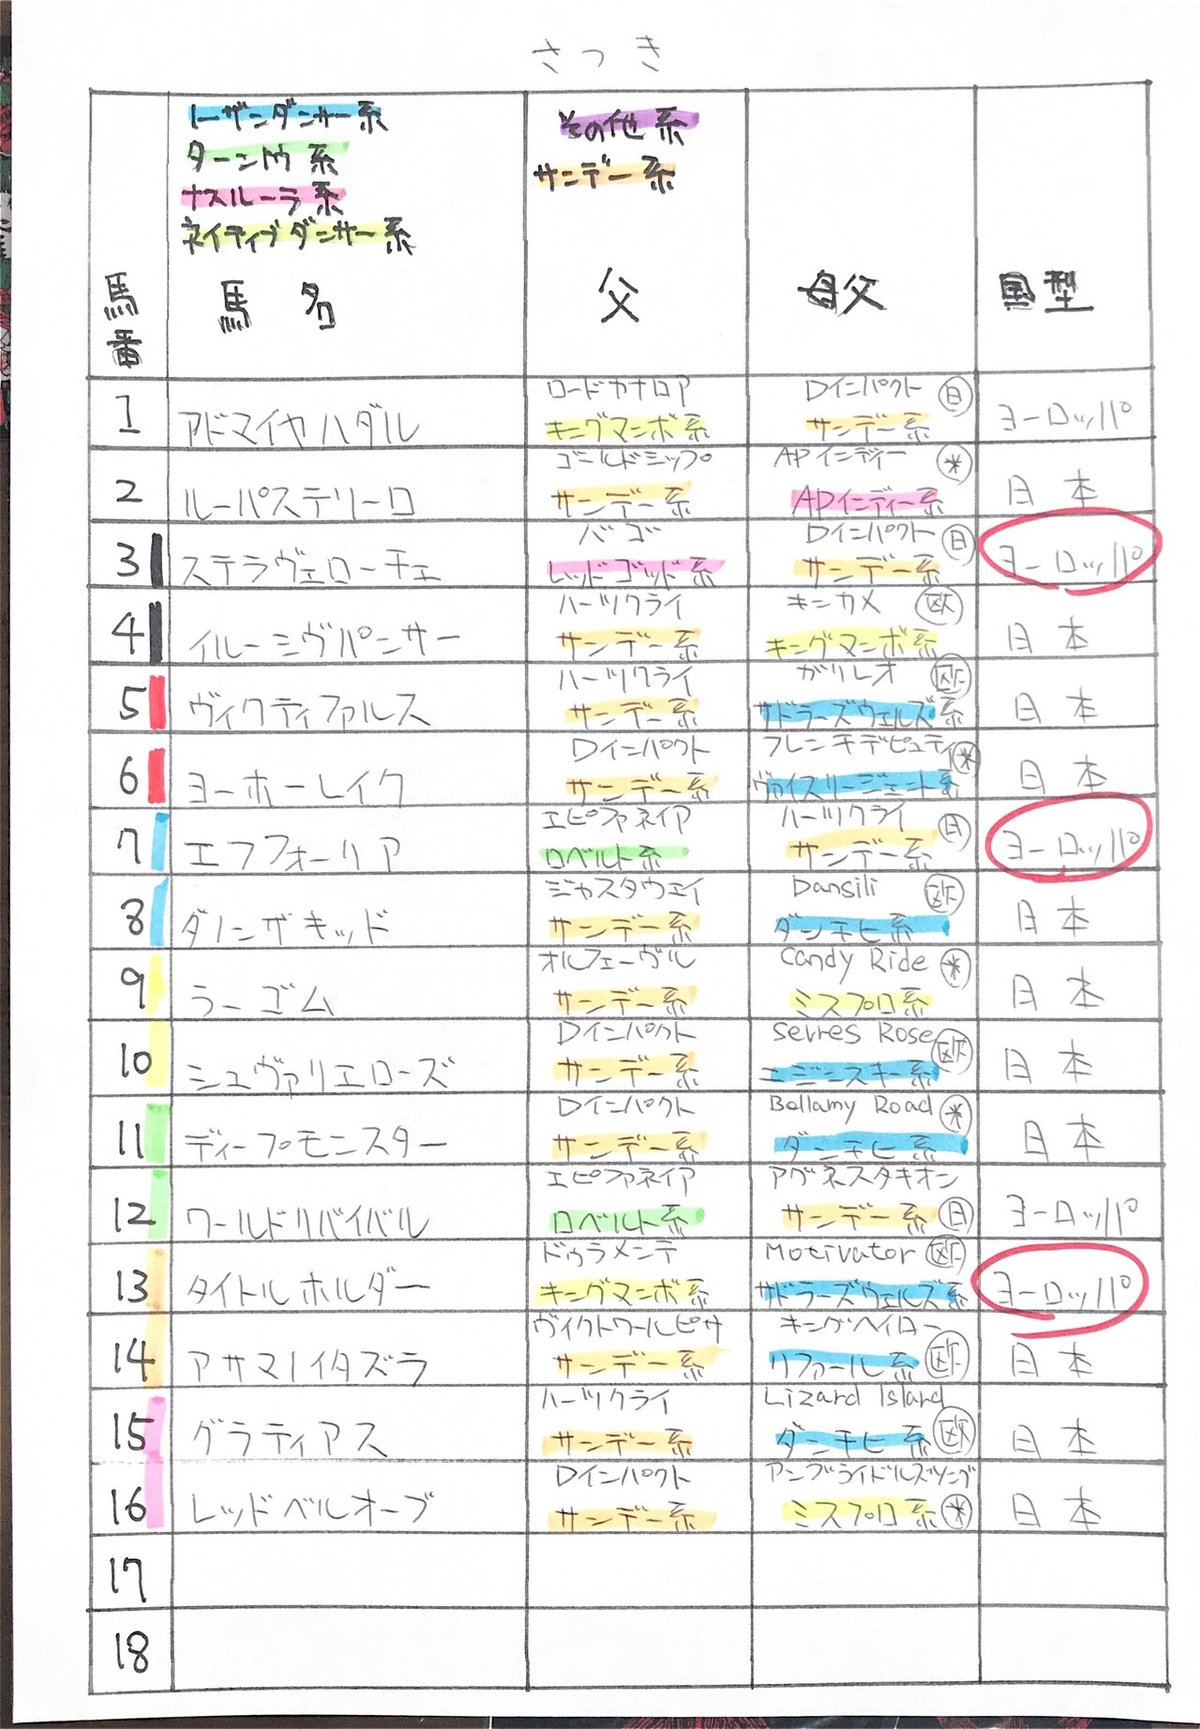 さつき
ノーザンダンサー系
ターントゥ系
ナスルーラ系
ネイティブダンサー系
その他系
サンデー系
馬番 馬名 父 母父 国型
1 アドマイヤハダル ロードカナロア キングマンボ系 Dインパクト 日 サンデー系 ヨーロッパ
2 ルーパステリーロ ゴールドシップ サンデー系 APインディー 米 APインディー系 日本
3 ステラヴェローチェ バゴ レッドゴッド系 Dインパクト 日 サンデー系 ヨーロッパ
4 イルーシヴパンサー ハーツクライ サンデー系 キンカメ 欧 キングマンボ系 日本
5 ヴィクティファルス ハーツクライ サンデー系 ガリレオ 欧 サドラーズウェルズ系 日本
6 ヨーホーレイク Dインパクト サンデー系 フレンチデピュティ 米 ヴァイスリージェント系 日本
7 エフフォーリア エピファネイア ロベルト系 ハーツクライ 日 サンデー系 ヨーロッパ
8 ダノンザキッド ジャスタウェイ サンデー系 Dansili 欧 ダンチヒ系 日本
9 ラーゴム オルフェーヴル サンデー系 Candy Ride 米 ミスプロ系 日本
10 シュヴァリエローズ Dインパクト サンデー系 Serres Rose 欧 ニジンスキー系 日本
11 ディープモンスター Dインパクト サンデー系 Bellamy Road 米 ダンチヒ系 日本
12 ワールドリバイバル エピファネイア ロベルト系 アグネスタキオン サンデー系 日 ヨーロッパ
13 タイトルホルダー ドゥラメンテ キングマンボ系 Motivator 欧 サドラーズウェルズ系 ヨーロッパ
14 アサマノイタズラ ヴィクトワールピサ サンデー系 キングヘイロー リファール系 欧 日本
15 グラティアス ハーツクライ サンデー系 Lizard Island ダンチヒ系 欧 日本
16 レッドベルオーブ Dインパクト サンデー系 アンブライドルズソング ミスプロ系 米 日本
17
18